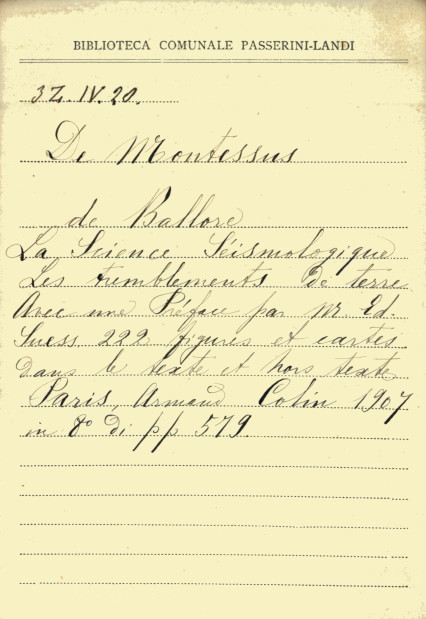 BIBLIOTECA COMUNALE PASSERINI-LANDI
3Z.IV.20.
De Montessus
de Ballore
La Science Séismologique
Les tremblements de terre
Avec une Préface par Mr Ed.
Suess 222 figures et cartes
dans le texte et hors texte
Paris, Armand Colin 1907
in 8º di pp 579.